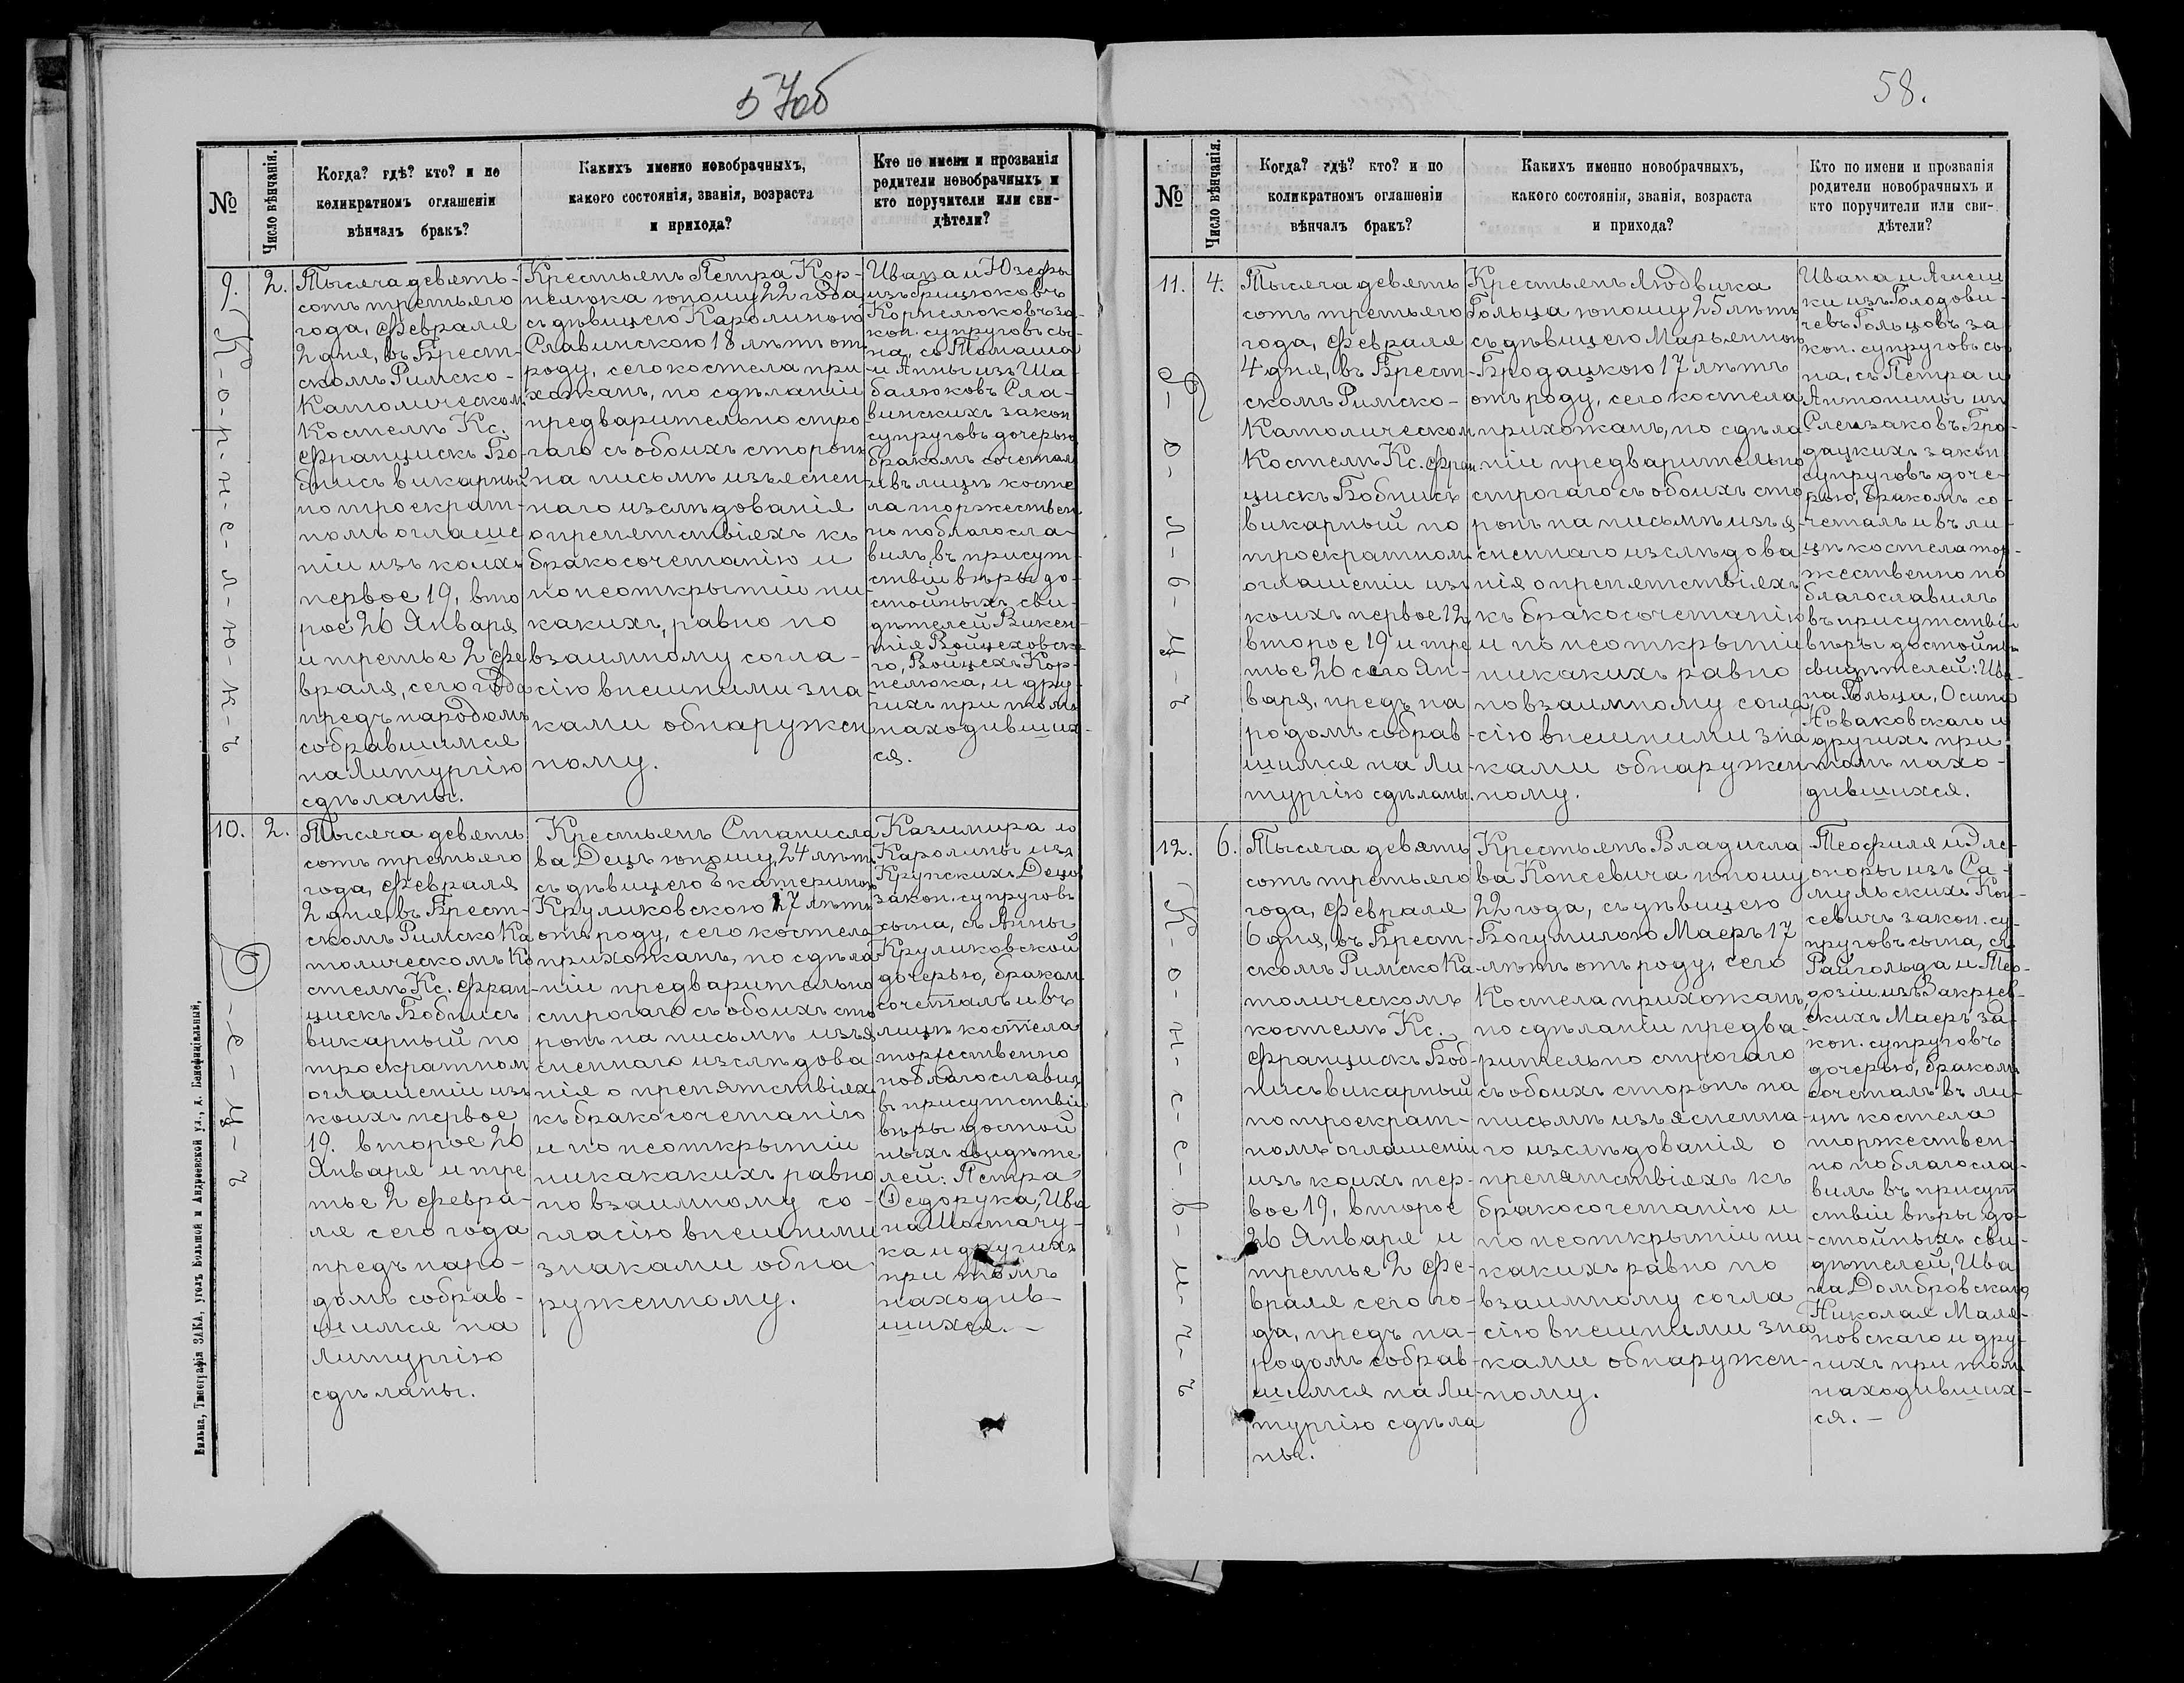 57об
№
Число вѣнчанія.
Когда? гдѣ? кто? и по
коликратномъ оглашеніи
вѣнчалъ бракъ?
Какихъ именно новобрачныхъ,
какого состоянія, званія, возраста
и прихода?
Кто по имени и прозванія
родители новобрачныхъ и
кто поручители или сви-
дѣтели?
9.
К-о-р-н-е-л-ю-к-ъ
2.
Тысяча девять-
сотъ третьяго
года, Февраля
2 дня, въ Брест-
скомъ Римско-
Католическомъ
Костелѣ Кс.
Францискъ Бо-
бнисъ викарный
по троекрат-
номъ оглаше
ніи изъ коихъ
первое 19, вто
рое 26 Января
и третье 2 Фе
враля, сего года
предъ народомъ
собравшимся
на Литургію
сдѣланы.
Крестьянъ Петра Кор-
нелюка юношу 22 года
съ дѣвицею Каролиною
Славинскою 18 лѣтъ отъ
роду, сего костела при
хожанъ, по сдѣланіи
предварительно стро
гаго съ обоихъ сторонъ
на письмѣ изъяснен-
наго изслѣдованія
о препятствіяхъ къ
бракосочетанію и
по неоткрытіи ни-
какихъ, равно по
взаимному согла-
сію внешними зна
ками обнаружен
ному.
Ивана и Юзефы
изъ Грицюковъ
Корнелюковъ за-
кон. супруговъ сы-
на, съ Томаша
и Анны изъ Ша-
балюковъ Сла-
винскихъ закон
супруговъ дочерью
бракомъ сочеталъ
и въ лицѣ косте
ла торжествен
но поблагосла-
вилъ въ присут-
ствіи вѣры до-
стойныхъ сви-
дѣтелей Викен-
тія Войцеховска-
го, Войцеха Кор-
нелюка, и дру-
гихъ при томъ
находивших-
ся.
10.
Д-е-ц-ъ
2.
Тысяча девять
сотъ третьяго
года, Февраля
2 дня, въ Брест-
скомъ Римско Ка
толическомъ Ко
стелѣ Кс. Фран-
цискъ Бобнисъ
викарный по
троекратном
оглашеніи изъ
коихъ первое
19. второе 26
Января и тре
тье 2 Февра-
ля сего года
предъ наро-
домъ собрав-
шимся на
Литургію
сдѣланы.
Крестьянъ Станисла
ва Децъ юношу, 24 лѣтъ
съ дѣвицею Екатериною
Круликовскою 17 лѣтъ
отъ роду, сего костела
прихожанъ, по сдѣла
ніи предварительно
строгаго съ обоихъ сто
ронъ на письмѣ изъя
сненнаго изслѣдова
нія о препятствіяхъ
къ бракосочетанію
и по неоткрытіи
никакакихъ равно
по взаимному со-
гласію внешними
знаками обна
руженному.
Казимира и
Каролины изъ
Крупскихъ Децо
закон. супруговъ
сына, съ Анны
Круликовской
дочерью, бракомъ
сочеталъ и въ
лицѣ костела
торжественно
поблагославил
въ присутствіи
вѣры достой
ныхъ свидѣте
лей: Петра
Федорука, Ива
на Шостачу-
ка и другихъ
при томъ
находив-
шихся.-
Вильна, Типографія ЗАКА, уголъ Большой и Андреевской ул., д. Бенефиціальный.
58.
№
Число вѣнчанія.
Когда? гдѣ? кто? и по
коликратномъ оглашеніи
вѣнчалъ бракъ?
Какихъ именно новобрачныхъ,
какого состоянія, званія, возраста
и прихода?
Кто по имени и прозванія
родители новобрачныхъ и
кто поручители или сви-
дѣтели?
11.
Г-о-л-ь-ц-ъ
4.
Тысяча девять
сотъ третьяго
года, Февраля
4 дня, въ Брест-
скомъ Римско-
Католическом
Костелѣ Кс. Фран
цискъ Бобнисъ
викарный по
троекратномъ
оглашеніи изъ
коихъ первое 12,
второе 19 и тре
тье 26 сего Ян-
варя, предъ на
родомъ собрав-
шимся на Ли-
тургію сдѣланы.
Крестьянъ Людвика
Гольца юношу 25 лѣтъ
съ дѣвицею Марьянною
Бродацкою 17 лѣтъ
отъ роду, сего костела
прихожанъ, по сдѣла
ніи предварительно
строгаго съ обоихъ сто
ронъ на письмѣ изъя-
сненнаго изслѣдова
нія о препятствіяхъ
къ бракосочетанію
и по неоткрытіи
никакихъ равно
по взаимному согла
сію внешними зна
ками обнаружен
ному.
Ивана и Агнеш
ки изъ Голодови-
чевъ Гольцовъ за
кон. супруговъ сы
на, съ Петра и
Антонины изъ
Слензаковъ Бро-
дацкихъ закон
супруговъ доче-
рью, бракомъ со-
четалъ и въ ли-
цѣ костела тор-
жественно по
благославилъ
въ присутствіи
вѣры достойнъ
свидѣтелей: Ива-
на Гольца, Осипа
Новаковскаго и
другихъ при
томъ нахо-
дившихся.
12.
К-о-н-с-е-в-и-ч-ъ
6.
Тысяча девять
сотъ третьяго
года, Февраля
6 дня, въ Брест-
скомъ Римско Ка-
толическомъ
костелѣ Кс.
Францискъ Боб-
нисъ викарный
по троекрат-
номъ оглашеніи
изъ коихъ пер-
вое 19, второе
26 Января и
третье 2 Фе-
враля сего го-
да, предъ на-
родомъ собрав-
шимся на Ли-
тургію сдѣла
ны.
Крестьянъ Владисла
ва Консевича юношу
22 года, съ дѣвицею
Богумилою Маеръ 17
лѣтъ отъ роду, сего
Костела прихожанъ,
по сдѣланіи предва-
рительно строгаго
съ обоихъ сторонъ на
письмѣ изъясненна-
го изслѣдованія о
препятствіяхъ къ
бракосочетанію и
по неоткрытіи ни
какихъ равно по
взаимному согла
сію внешними зна
ками обнаружен-
ному.
Теофиля и Эле-
оноры изъ Са-
мульскихъ Кон-
севичъ закон. су-
пруговъ сына, съ
Райгольда и Тео-
дозіи изъ Закрзев-
скихъ Маеръ за-
кон. супруговъ
дочерью, бракомъ
сочеталъ въ ли-
цѣ костела
торжествен-
но поблагосла-
вилъ въ присут
ствіи вѣры до-
стойныхъ сви-
дѣтелей, Ива
на Домбровскаго
Николая Маля-
новскаго и дру-
гихъ при томъ
находивших-
ся.-